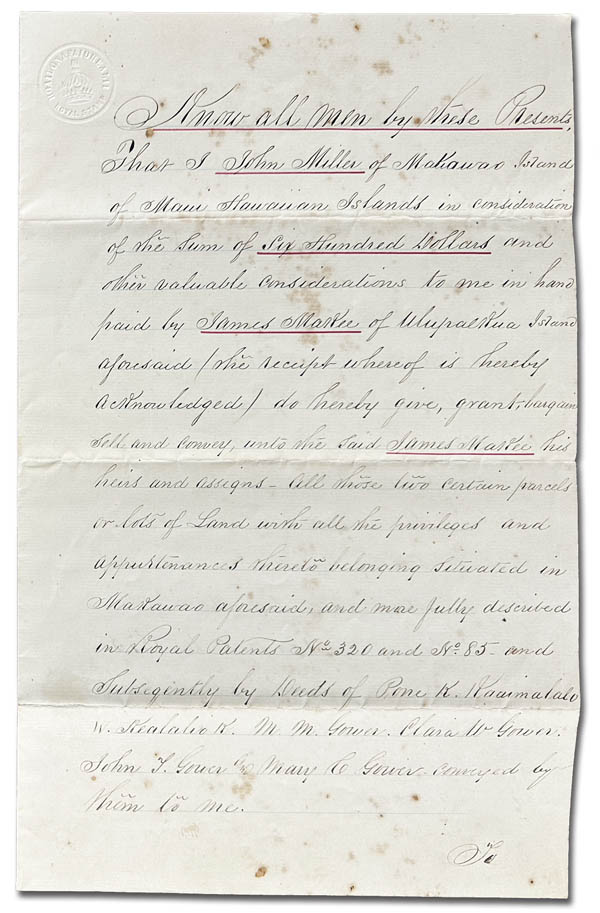 Know all men by these Presents,
That I John Miller of Makawao Island
of Maui Hawaiian Islands in consideration
of the Sum of Six Hundred Dollars and
other valuable considerations to me in hand
paid by James Makee of Ulupalkua Island
aforesaid (the receipt whereof is hereby
acknowledged) do hereby give, grant, bargain
sell and convey, unto the said James Makee his
heirs and assigns - All those two certain parcels
or lots of Land with all the privileges and
appurtenances thereto belonging situated in
Makawao aforesaid, and more fully described
in Royal Patents No. 320 and No. 85 - and
Subseqently by Deeds of Pone K. Kaaimalalo
W. Kealalio K. M. M. Gower. Clara W Gower.
John T. Gower & Mary C Gower - conveyed by
them to me.
To